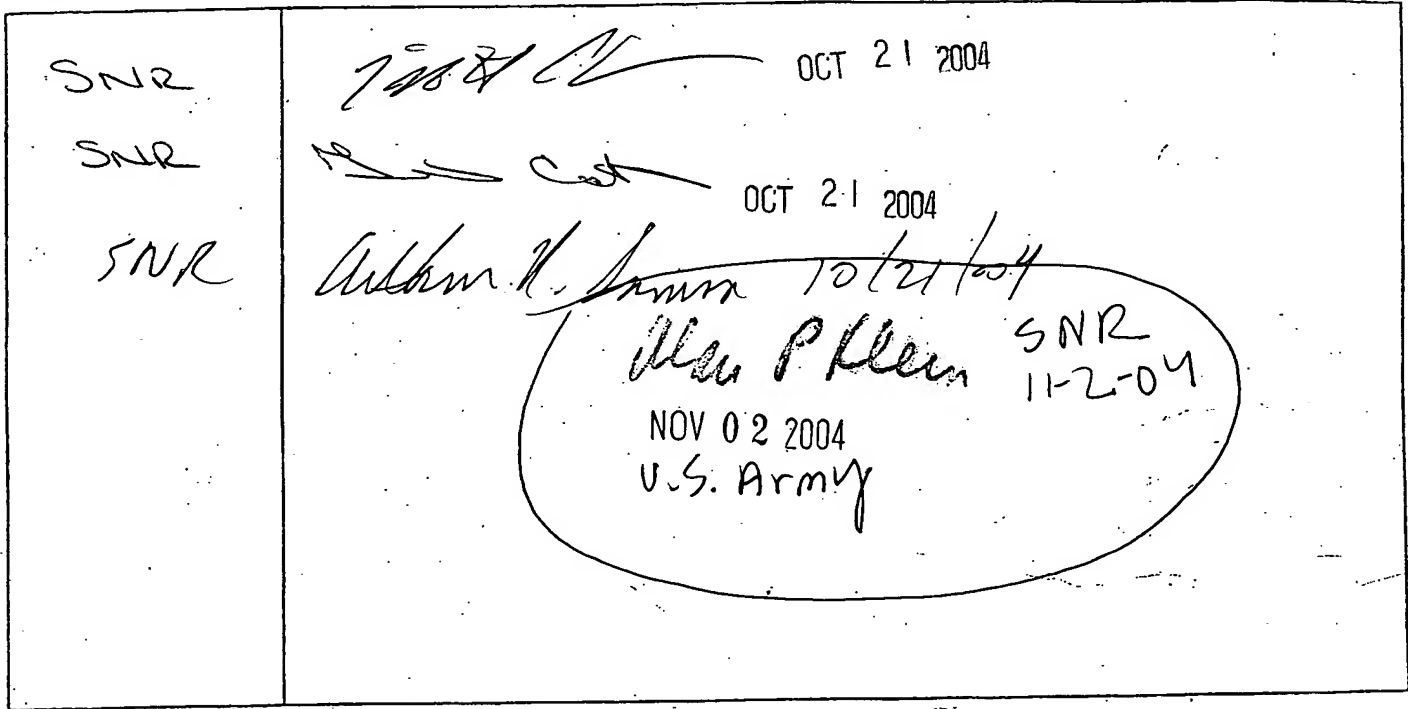 SNR OCT 21 2004
SNR OCT 21 2004
SNR H. 10/21/2004
Alan P Klein SNR
11-2-04
NOV 02 2004
U.S. Army